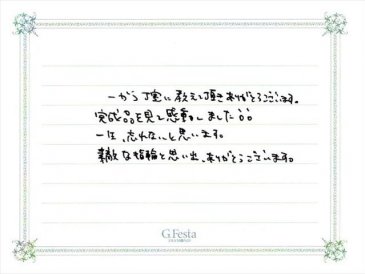 一から丁寧に教えて頂きありがとうございます。
完成品を見て感動しました
一生、忘れないと思います。
素敵な指輪と思い出、ありがとうございます。
G.Festa